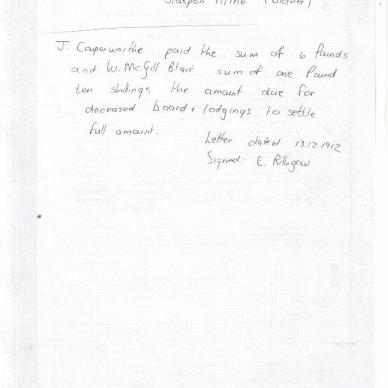 J. Couperwaithe paid the sum of 6 Pounds
and W. McGill Blair sum of one Pound
ten shillings the amount due for
deceased board & lodgings to settle
full amount.
Letter dated 13.12.1912
Signed E.